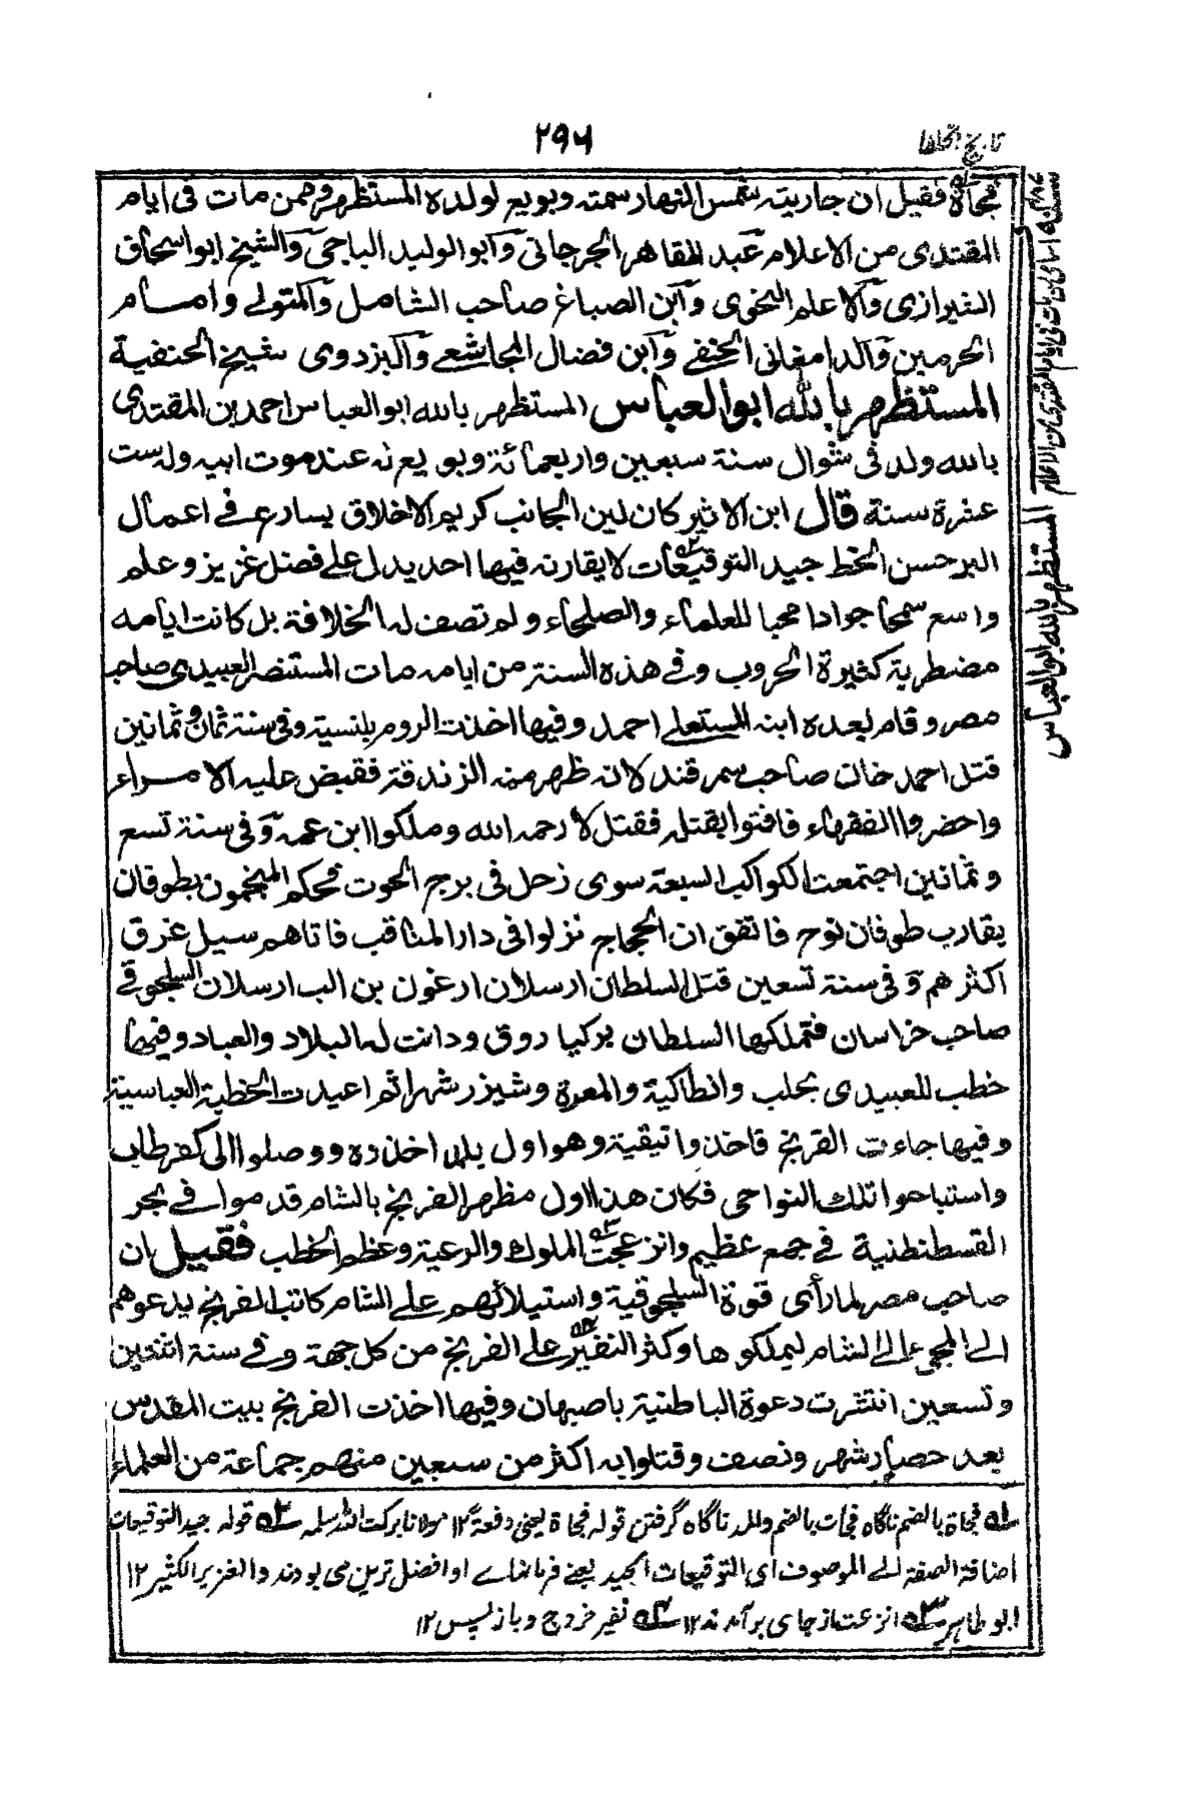 تاريخ الخلفا
٢٩٦
فجاة فقيل ان جاريته شمس النهار سمته وبويع لولده المستظهر وممن مات فى ايام
المقتدى من الاعلام عبد القاهر الجرجانى وابو الوليد الباجى والشيخ ابو اسحاق
الشيرازى والاعلم النحوى وابن الصباغ صاحب الشامل والمتولے وامام
الحرمين والدامغانى الحنفے وابن فضال المجاشعے والبزدوى شيخ الحنفية
المستظهر بالله ابو العباس المستظهر بالله ابو العباس احمد بن المقتدى
بالله ولد فى شوال سنة سبعين واربعمائة وبويع له عند موت ابيه وله ست
عشرة سنة قال ابن الاثير كان لين الجانب كريم الاخلاق يسارع فے اعمال
البر حسن الخط جيد التوقيعات لا يقارنه فيها احد يدل على فضل غزيز وعلم
واسع سمحا جوادا محبا للعلماء والصلحاء ولم تصف له الخلافة بل كانت ايامه
مضطربة كثيرة الحروب وفے هذه السنة من ايامه مات المستنصر العبيدى صاحب
مصر وقام بعده ابنه المستعلے احمد وفيها اخذت الروم بلنسية وفى سنة ثمان وثمانين
قتل احمد خان صاحب سمرقند لانه ظهر منه الزندقة فقبض عليه الامراء
واحضروا الفقهاء فافتوا بقتله فقتل لا رحمه الله وملكوا ابن عمه وفى سنة تسع
وثمانين اجتمعت الكواكب السبعة سوى زحل فى برج الحوت فحكم المنجمون بطوفان
يقارب طوفان نوح فاتفق ان الحجاج نزلوا فى دار المناقب فاتاهم سيل غرق
اكثرهم وفى سنة تسعين قتل السلطان ارسلان ارغون بن الب ارسلان السلجوقے
صاحب خراسان فتملكها السلطان بركياروق ودانت له البلاد والعباد وفيها
خطب للعبيدى بحلب وانطاكية والمعرة وشيزر شهرا ثم اعيدت الخطبة العباسية
وفيها جاءت الفرنج فاخذوا نيقية وهو اول بلد اخذوه ووصلوا الى كفرطاب
واستباحوا تلك النواحى فكان هذا اول مظهر الفرنج بالشام قدموا فے بحر
القسطنطنية فے جمع عظيم وانزعجت الملوك والرعية وعظم الخطب فقيل ان
صاحب مصر لما رأى قوة السلجوقية واستيلائهم علے الشام كاتب الفرنج يدعوهم
الے المجى الے الشام ليملكوها وكثر النفير علے الفرنج من كل جهة وفے سنة اثنتين
وتسعين انتشرت دعوة الباطنية باصبهان وفيها اخذت الفرنج بيت المقدس
بعد حصار شهر ونصف وقتلوا به اكثر من سبعين منهم جماعة من العلماء
له فجاة بالضم ناگاه فجأت بالضم والمد ناگاه گرفتن قوله فجاة يعنى دفعة ١٢ مولانا بركت الله سلمه ٢ه قوله جيد التوقيعات
اضافة الصفة الے الموصوف اى التوقيعات الجيد يعنے فرمانهاے او افضل ترين مى بودند والغزير الكثير ١٢
ابو طاهر ٣ه انزعت از جاى برآمدند ١٢ ٤ه نفير خروج و باز پس ١٢
اسامى من مات فى ايام المقتدى من الاعلام
المستظهر بالله ابو العباس